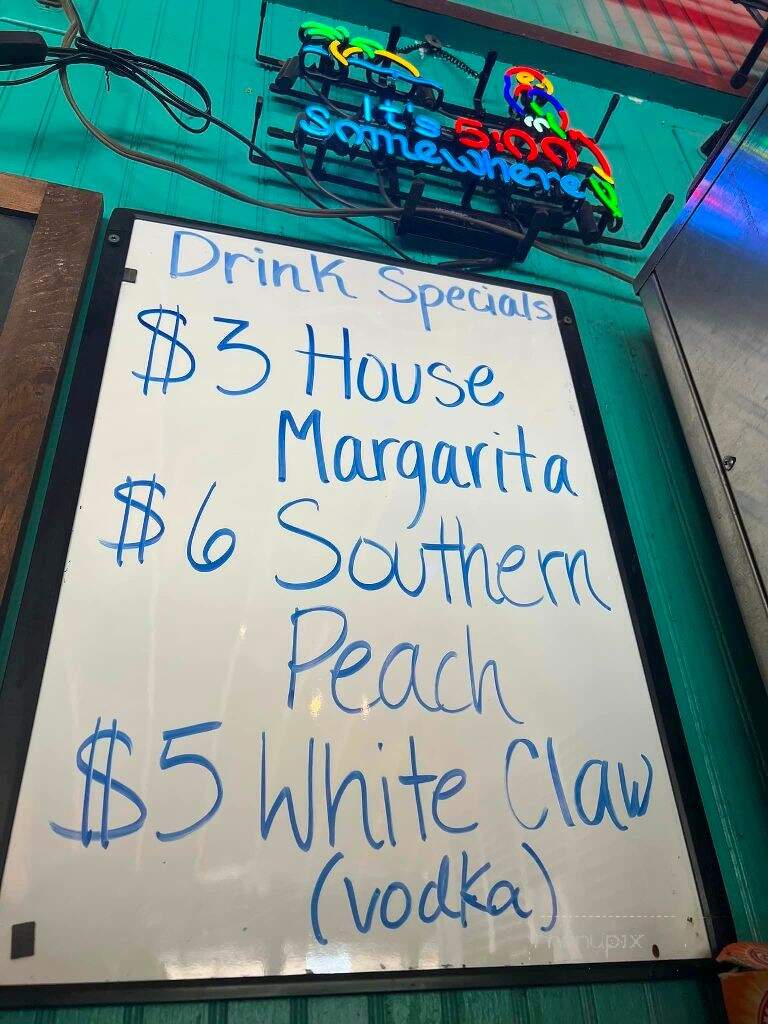 It's 5:00
Somewhere
Drink Specials
$3 House
Margarita
$6 Southern
Peach
$5 White Claw
(vodka)
menupix